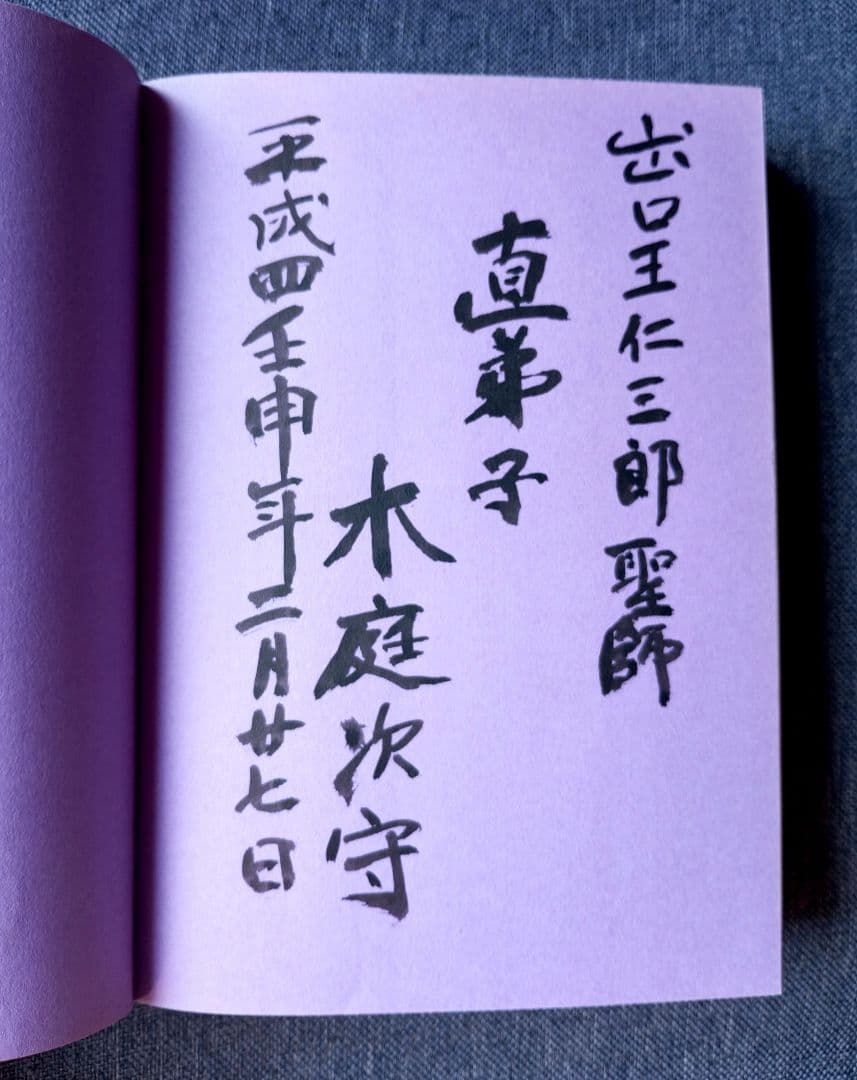 出口王仁三郎聖師
直弟子
木庭次守
平成四壬申年二月廿七日